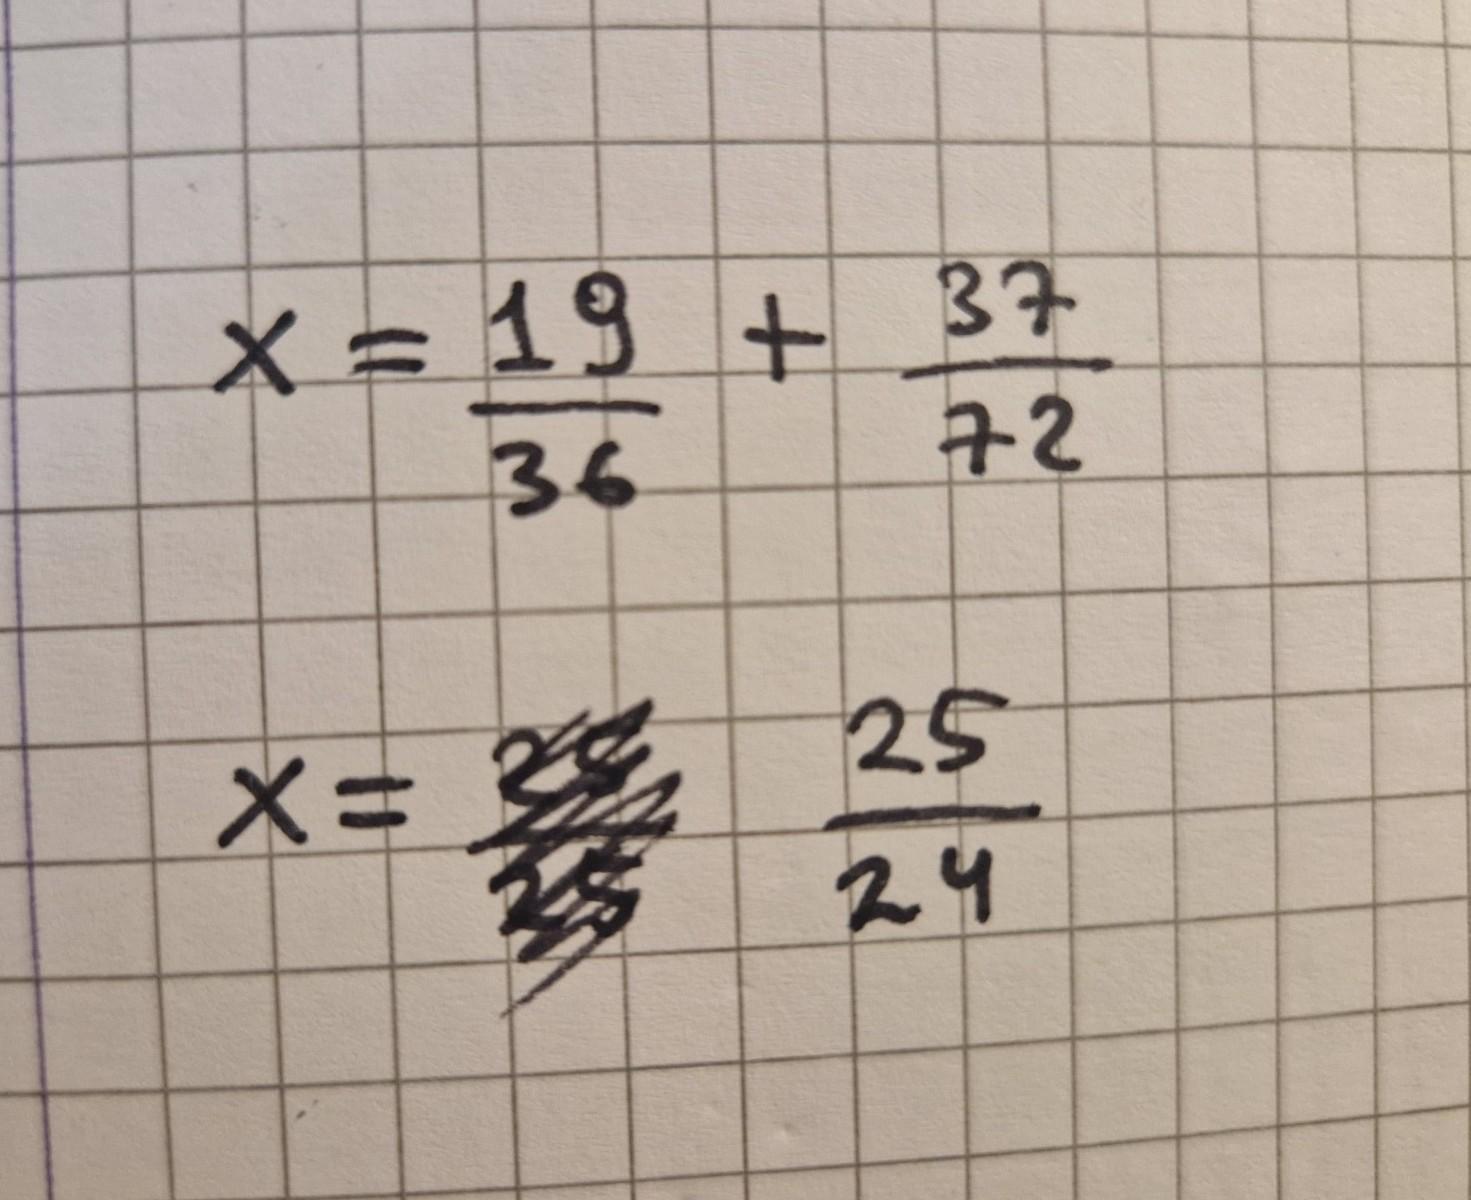 x = 19/36 + 37/72
x = 25/24